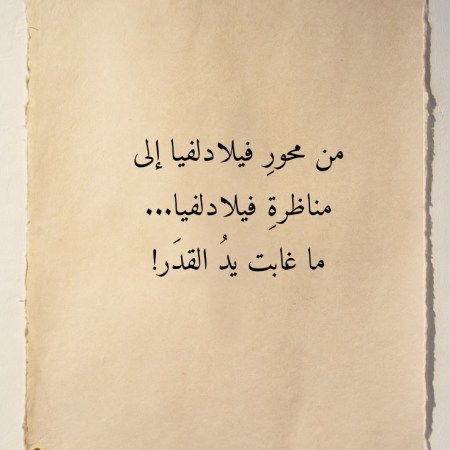 من محورِ فيلادلفيا إلى
مناظرةِ فيلادلفيا...
ما غابت يدُ القدَر!